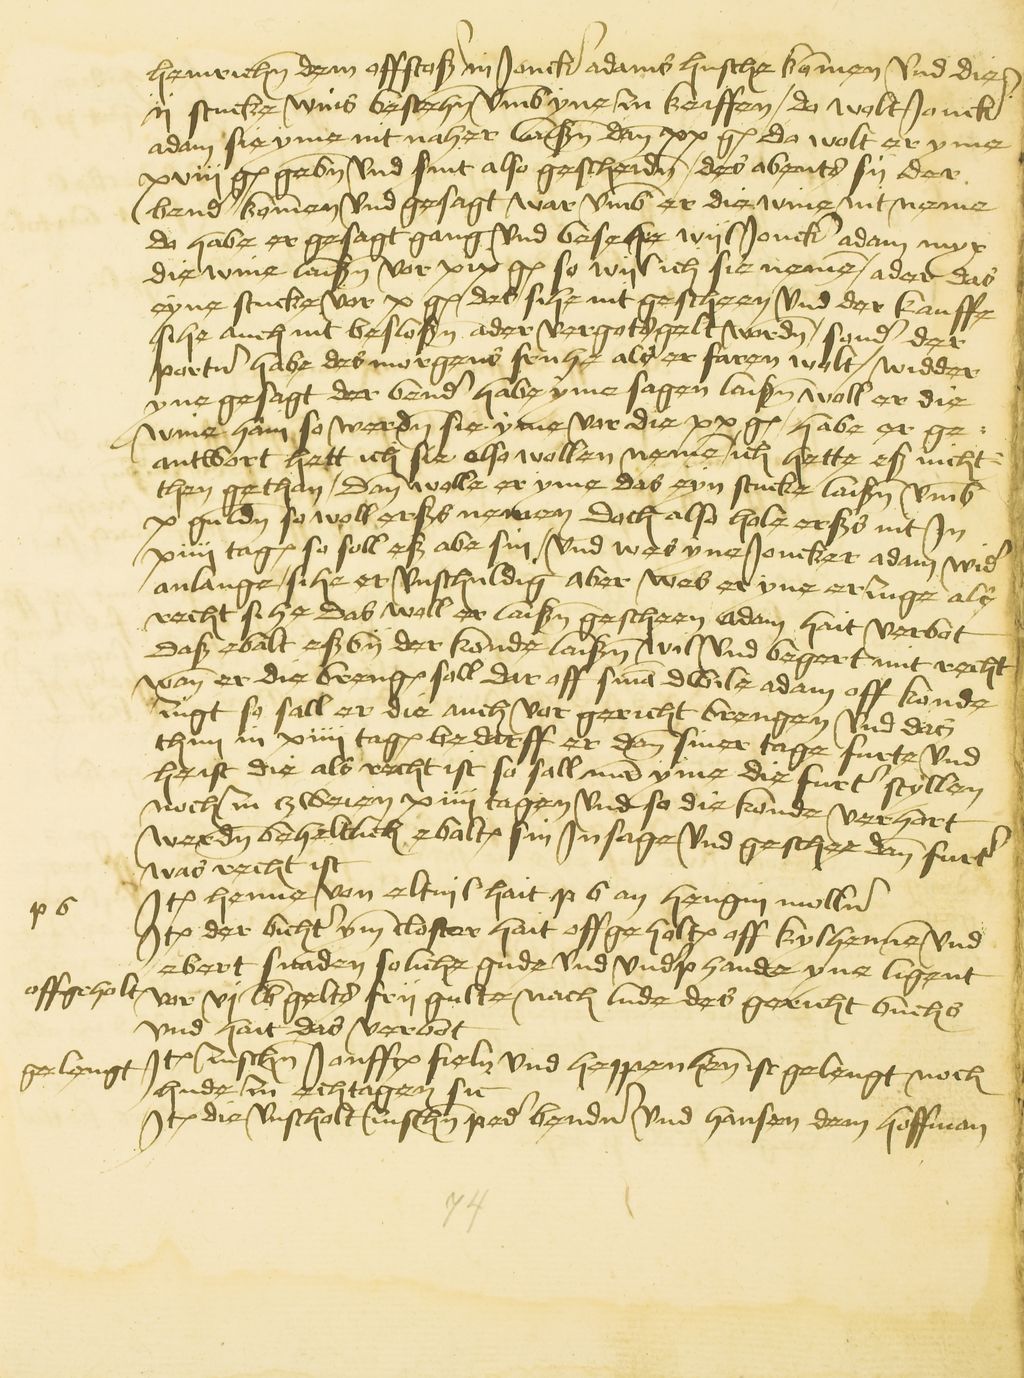 heinrichn dem offstoß in Joncker adams husche komen vnd die
ij stucke wins besehen vmb yne zu keiffen / do wolt Joncker
adam sie yme nit naher laißn dan xx gl do wolt er yme
xviij gl gebn vnd sint also gescheidn / des abents sij der
bend komen vnd gesagt war vmb er die wine nit neme
do habe er gesagt gang vnd besehe wijl Joncker adam myr
die wine laißn vor xix gl so wijl ich sie neme / ader das
eyne stucke vor x gl / des sihe nit gescheen vnd der kauffe
sihe auch nit beslossn ader vergotzgelt wordn / sonder der
portner habe des morgens fruhe als er faren wolt / widder
yne gesagt der bender habe yme sagen laißn woll er die
wine hain so werdn sie yme vor die xx gl / habe er ge=
antwort hett ich sie also wollen neme / ich hette eß necht=
chen gethan / dan wolle er yme das eyn stucke laißn vmb
x guldn so woll erßs nemen doch also hole erßs nit In
xiiij tagen so soll eß abe sin / vnd wes yne Joncker adam wider
anlange / sihe er vnschuldig aber wes er yne erzuge als
recht sihe das woll er laißn gescheen Adam hait verbot
daß ebalt eß bij der konde laißn wil vnd begert mit recht
wan er die brengen soll dar off sint dwile adam off konde
zugt so sall er die auch vor gericht brengen vnd das
thun in xiiij tagen bedarff er dan siner tage furte vnd
heist die als recht ist so sall man yme die furter stellen
noch zu zweien xiiij tagen vnd so die konde verhort
werdn beheltlich ebalt sin Insage vnd geschee dan furter
was recht ist
p b Itm henne von eltuil hait p b an hengin moller
Itm der bichter ym closter hait offgeholt off kylhenne vnd
ebert snaden soliche gude vnd vndphande yne ligent
offgeholt vor vj lb gelts frij gulte nach lude des gericht buchs
vnd hait das verbot
gelengt Itm zuschn Jonffr fielin vnd heppenhen ist gelengt noch
hude zu echtagen sie
Itm die vnscholt zuschn peder bender vnd hansen dem hoffman
74